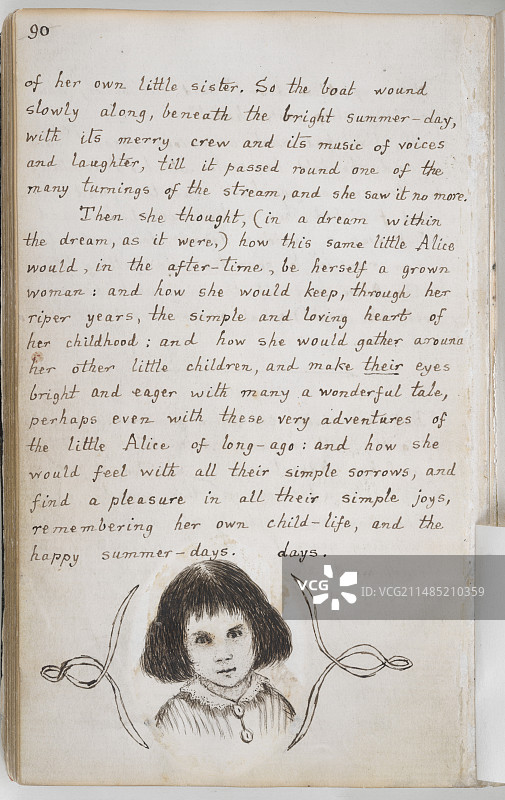 90
of her own little sister. So the boat wound
slowly along, beneath the bright summer-day,
with its merry crew and its music of voices
and laughter, till it passed round one of the
many turnings of the stream, and she saw it no more.
Then she thought, (in a dream within
the dream, as it were,) how this same little Alice
would, in the after-time, be herself a grown
woman: and how she would keep, through her
riper years, the simple and loving heart of
her childhood: and how she would gather around
her other little children, and make their eyes
bright and eager with many a wonderful tale,
perhaps even with these very adventures of
the little Alice of long-ago: and how she
would feel with all their simple sorrows, and
find a pleasure in all their simple joys,
remembering her own child-life, and the
happy summer-days. days.
VCG
VCG.COM
ID:VCG211485210359